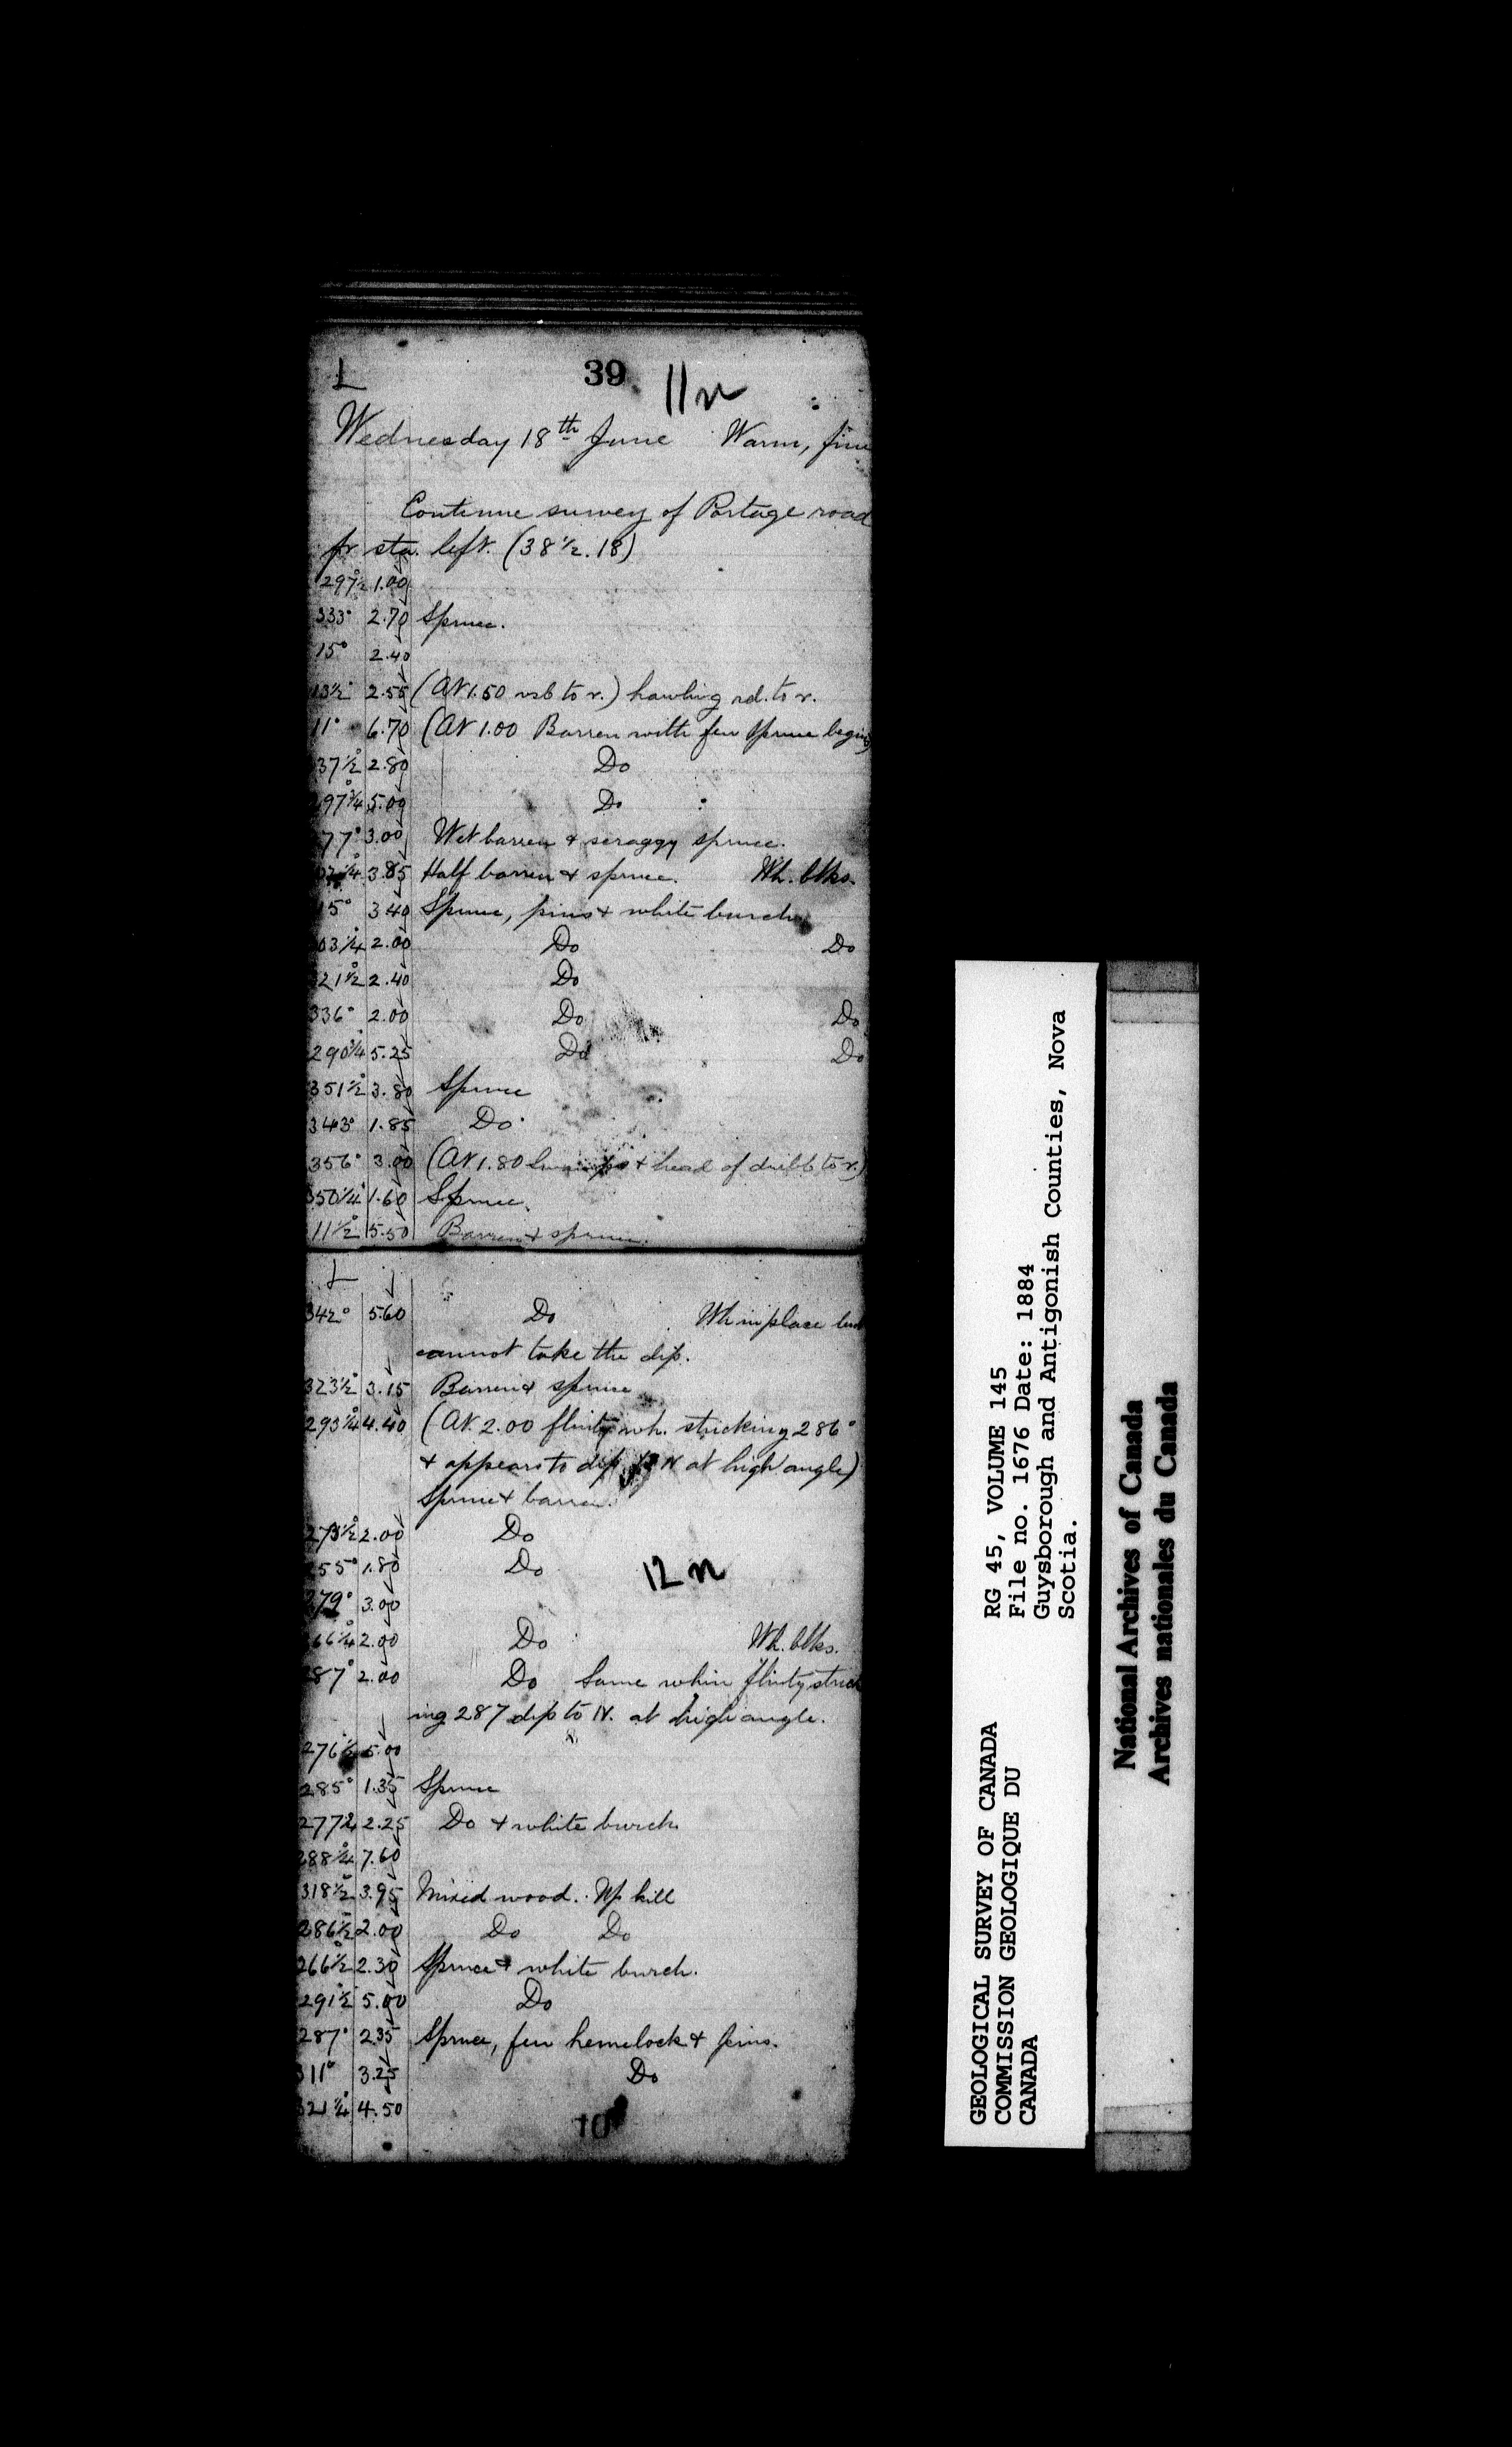 39
11 n
L
Wednesday 18th June Warm, fine
Continue survey of Portage road
fr sta. left. (38 1/2. 18)
297 1/2° 1.00
333° 2.70 Spruce.
15° 2.40
13 1/2° 2.55 (At 1.50 to r.) hawling rd. to r.
11° 6.70 (At 1.00 Barren with few spruce begins
37 1/2° 2.80 Do
97 3/4° 5.00 Do
77° 3.00 Wet barren & scraggy spruce.
3.85 Half barren & spruce. Wh. blks.
15° 3.40 Spruce, pins & white burch
03 1/4° 2.00 Do Do
321 1/2° 2.40 Do
336° 2.00 Do Do
290 3/4° 5.25 Do Do
351 1/2° 3.80 Spruce
343° 1.85 Do
356° 3.00 (At 1.80 & head of dribb to r.)
350 1/4° 1.60 Spruce.
11 1/2° 5.50 Barren & spruce.
L
342° 5.60 Do Wh in place but
cannot take the dip.
323 1/2° 3.15 Barren & spruce
293 1/4° 4.40 (At 2.00 flinty wh. stricking 286°
& appears to dip to N at high angle)
Spruce & barren.
273 1/2 2.00 Do
255° 1.80 Do
12 n
279° 3.00
266 1/4° 2.00 Do Wh. blks.
287° 2.00 Do Same whin flinty strick
ing 287 dip to N. at high angle.
276 1/2 5.00
285° 1.35 Spruce
277 2.25 Do & white burch
288 1/4° 7.60
318 1/2° 3.95 Mixed wood. Up hill
286 1/2° 2.00 Do Do
266 1/2° 2.30 Spruce & white burch.
291 1/2° 5.00 Do
287° 2.35 Spruce, few hemelock & pins.
311° 3.25 Do
321 1/4° 4.50
10
GEOLOGICAL SURVEY OF CANADA
COMMISSION GEOLOGIQUE DU
CANADA
RG 45, VOLUME 145
File no. 1676 Date: 1884
Guysborough and Antigonish Counties, Nova
Scotia.
National Archives of Canada
Archives nationales du Canada